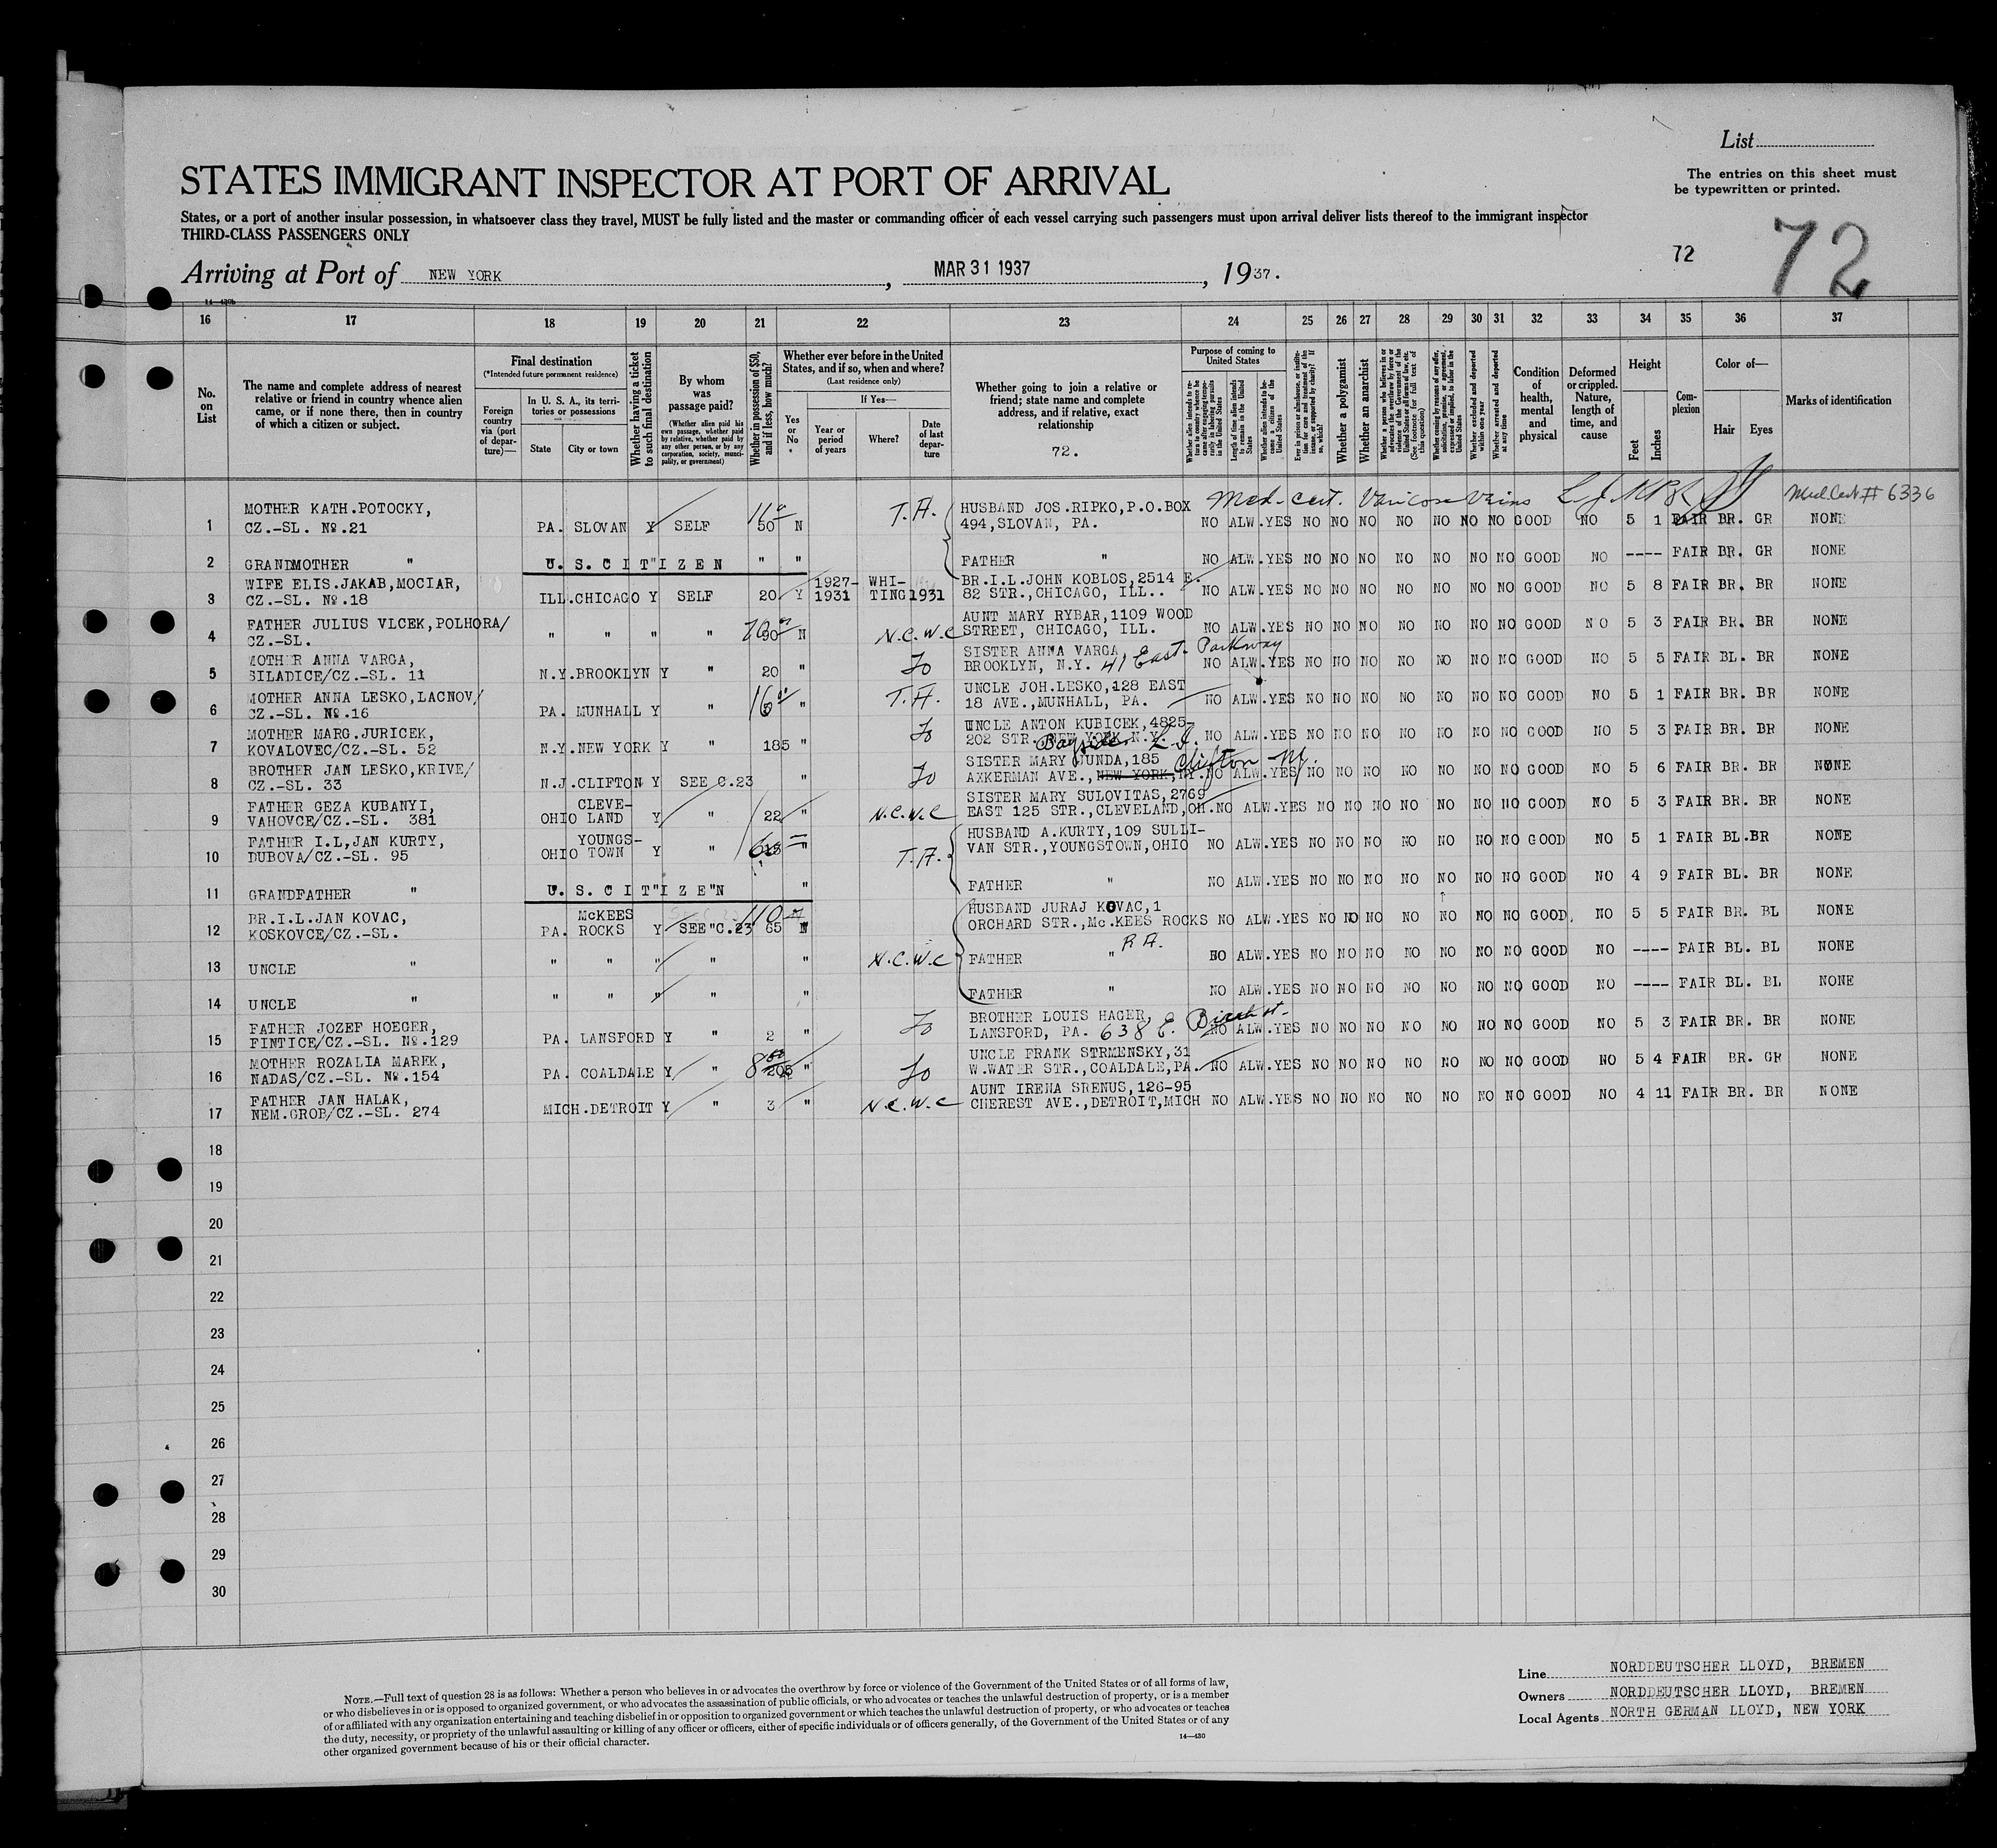 List
The entries on this sheet must
be typewritten or printed.
STATES IMMIGRANT INSPECTOR AT PORT OF ARRIVAL
States, or a port of another insular possession, in whatsoever class they travel, MUST be fully listed and the master or commanding officer of each vessel carrying such passengers must upon arrival deliver lists thereof to the immigrant inspector
THIRD-CLASS PASSENGERS ONLY
72 72
Arriving at Port of NEW YORK, MAR 31 1937, 1937.
16 17 18 19 20 21 22 23 24 25 26 27 28 29 30 31 32 33 34 35 36 37
No. on List
The name and complete address of nearest relative or friend in country whence alien came, or if none there, then in country of which a citizen or subject.
Final destination
(*Intended future permanent residence)
Foreign country via (port of departure)—
In U. S. A., its territories or possessions
State City or town
Whether having a ticket to such final destination
By whom was passage paid?
(Whether alien paid his own passage, whether paid by relative, whether paid by any other person, or by any corporation, society, municipality, or government)
Whether in possession of $50, and if less, how much?
Whether ever before in the United States, and if so, when and where?
(Last residence only)
Yes or No
If Yes—
Year or period of years
Where?
Date of last departure
Whether going to join a relative or friend; state name and complete address, and if relative, exact relationship
72.
Purpose of coming to United States
Whether alien intends to return to country whence he came after engaging temporarily in laboring pursuits in the United States
Length of time alien intends to remain in the United States
Whether alien intends to become a citizen of the United States
Ever in prison or almshouse, or institution for care and treatment of the insane, or supported by charity? If so, which?
Whether a polygamist
Whether an anarchist
Whether coming by reason of any offer, solicitation, promise, or agreement, expressed or implied, to labor in the United States
Whether excluded and deported within one year
Whether arrested and deported at any time
Condition of health, mental and physical
Deformed or crippled. Nature, length of time, and cause
Height
Feet Inches
Complexion
Color of—
Hair Eyes
Marks of identification
Med. cert. Varicose Veins Med Cert # 6336
MOTHER KATH.POTOCKY, T.H. HUSBAND JOS.RIPKO,P.O.BOX
1 CZ.-SL. №.21 PA. SLOVAN Y SELF 50 N 494,SLOVAN, PA. NO ALW.YES NO NO NO NO NO NO NO GOOD NO 5 1 FAIR BR. GR NONE
2 GRANDMOTHER " U. S. C I T"I Z E N " " FATHER " NO ALW.YES NO NO NO NO NO NO NO GOOD NO ---- FAIR BR. GR NONE
WIFE ELIS.JAKAB,MOCIAR, 1927- WHI- BR.I.L.JOHN KOBLOS,2514 E.
3 CZ.-SL. №.18 ILL.CHICAGO Y SELF 20 Y 1931 TING 1931 82 STR.,CHICAGO, ILL.. NO ALW.YES NO NO NO NO NO NO NO GOOD NO 5 8 FAIR BR. BR NONE
FATHER JULIUS VLCEK,POLHORA/ AUNT MARY RYBAR,1109 WOOD
4 CZ.-SL. " " " " N N.C.W.C STREET, CHICAGO, ILL. NO ALW.YES NO NO NO NO NO NO NO GOOD NO 5 3 FAIR BR. BR NONE
MOTHER ANNA VARGA, SISTER ANNA VARGA,
5 SILADICE/CZ.-SL. 11 N.Y.BROOKLYN Y " 20 " BROOKLYN, N.Y. 41 East. Parkway NO ALW.YES NO NO NO NO NO NO NO GOOD NO 5 5 FAIR BL. BR NONE
MOTHER ANNA LESKO,LACNOV/ UNCLE JOH.LESKO,128 EAST
6 CZ.-SL. №.16 PA. MUNHALL Y " " T.H. 18 AVE.,MUNHALL, PA. NO ALW.YES NO NO NO NO NO NO NO GOOD NO 5 1 FAIR BR. BR NONE
MOTHER MARG.JURICEK, UNCLE ANTON KUBICEK,4825-
7 KOVALOVEC/CZ.-SL. 52 N.Y.NEW YORK Y " 185 " 202 STR. NEW YORK N.Y. Bayside L.I. NO ALW.YES NO NO NO NO NO NO NO GOOD NO 5 3 FAIR BR. BR NONE
BROTHER JAN LESKO,KRIVE/ SISTER MARY JUNDA,185 Clifton NJ.
8 CZ.-SL. 33 N.J.CLIFTON Y SEE C.23 " AXKERMAN AVE.,NEW YORK,NY.NO ALW.YES NO NO NO NO NO NO NO GOOD NO 5 6 FAIR BR. BR NONE
FATHER GEZA KUBANYI, CLEVE- SISTER MARY SULOVITAS,2769
9 VAHOVCE/CZ.-SL. 381 OHIO LAND Y " 22 " N.C.W.C EAST 125 STR.,CLEVELAND,OH.NO ALW.YES NO NO NO NO NO NO NO GOOD NO 5 3 FAIR BR. BR NONE
FATHER I.L,JAN KURTY, YOUNGS- HUSBAND A.KURTY,109 SULLI-
10 DUBOVA/CZ.-SL. 95 OHIO TOWN Y " " T.H. VAN STR.,YOUNGSTOWN,OHIO NO ALW.YES NO NO NO NO NO NO NO GOOD NO 5 1 FAIR BL.BR NONE
11 GRANDFATHER " U. S. C I T"I Z E"N " FATHER " NO ALW.YES NO NO NO NO NO NO NO GOOD NO 4 9 FAIR BL. BR NONE
BR.I.L.JAN KOVAC, McKEES 110 HUSBAND JURAJ KOVAC,1
12 KOSKOVCE/CZ.-SL. PA. ROCKS Y SEE"C.23 65 N ORCHARD STR.,Mc.KEES ROCKS NO ALW.YES NO NO NO NO NO NO NO GOOD. NO 5 5 FAIR BR. BL NONE
13 UNCLE " " " " " " N.C.W.C FATHER " R.A. NO ALW.YES NO NO NO NO NO NO NO GOOD NO ---- FAIR BL. BL NONE
14 UNCLE " " " " " " FATHER " NO ALW.YES NO NO NO NO NO NO NO GOOD NO ---- FAIR BL. BL NONE
FATHER JOZEF HOEGER, BROTHER LOUIS HAGER,
15 FINTICE/CZ.-SL. №.129 PA. LANSFORD Y " 2 " LANSFORD, PA. 638 E. NO ALW.YES NO NO NO NO NO NO NO GOOD NO 5 3 FAIR BR. BR NONE
MOTHER ROZALIA MAREK, UNCLE FRANK STRMENSKY,31
16 NADAS/CZ.-SL. №.154 PA. COALDALE Y " " W.WATER STR.,COALDALE,PA. NO ALW.YES NO NO NO NO NO NO NO GOOD NO 5 4 FAIR BR. GR NONE
FATHER JAN HALAK, AUNT IRENA SRENUS,126-95
17 NEM.GROB/CZ.-SL. 274 MICH.DETROIT Y " 3 " N.C.W.C CHEREST AVE.,DETROIT,MICH NO ALW.YES NO NO NO NO NO NO NO GOOD NO 4 11 FAIR BR. BR NONE
18
19
20
21
22
23
24
25
26
27
28
29
30
NOTE.—Full text of question 28 is as follows: Whether a person who believes in or advocates the overthrow by force or violence of the Government of the United States or of all forms of law,
or who disbelieves in or is opposed to organized government, or who advocates the assassination of public officials, or who advocates or teaches the unlawful destruction of property, or is a member
of or affiliated with any organization entertaining and teaching disbelief in or opposition to organized government or which teaches the unlawful destruction of property, or who advocates or teaches
the duty, necessity, or propriety of the unlawful assaulting or killing of any officer or officers, either of specific individuals or of officers generally, of the Government of the United States or of any
other organized government because of his or their official character.
14—430
Line NORDDEUTSCHER LLOYD, BREMEN
Owners NORDDEUTSCHER LLOYD, BREMEN
Local Agents NORTH GERMAN LLOYD, NEW YORK